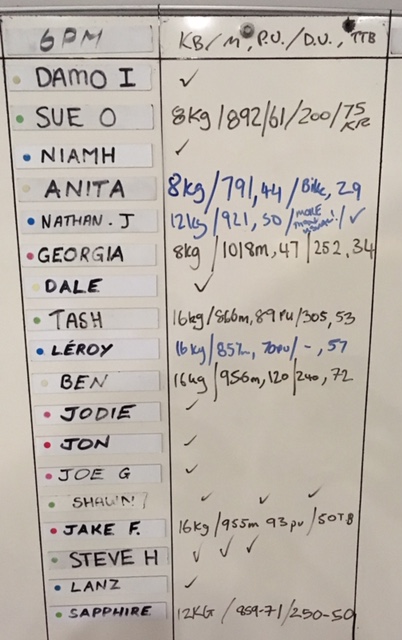 6PM KB/M, P.U./D.U., TTB
DAMO I ✓
SUE O 8kg/892/61/200/75 KR
NIAMH ✓
ANITA 8kg/791,44/Bike, 29
NATHAN.J 12kg/921, 50/MORE /✓
GEORGIA 8kg/1018m, 47/252, 34
DALE ✓
TASH 16kg/866m, 89 PU/305, 53
LÉROY 16kg/857m, 70PU/-, 57
BEN 16kg/956m, 120/240, 72
JODIE ✓
JON ✓
JOE G ✓
SHAWN ✓ ✓ ✓
JAKE F. 16kg/955m 93 pu/50TB
STEVE H ✓ ✓ ✓
LANZ ✓
SAPPHIRE 12KG/859-71/250-50